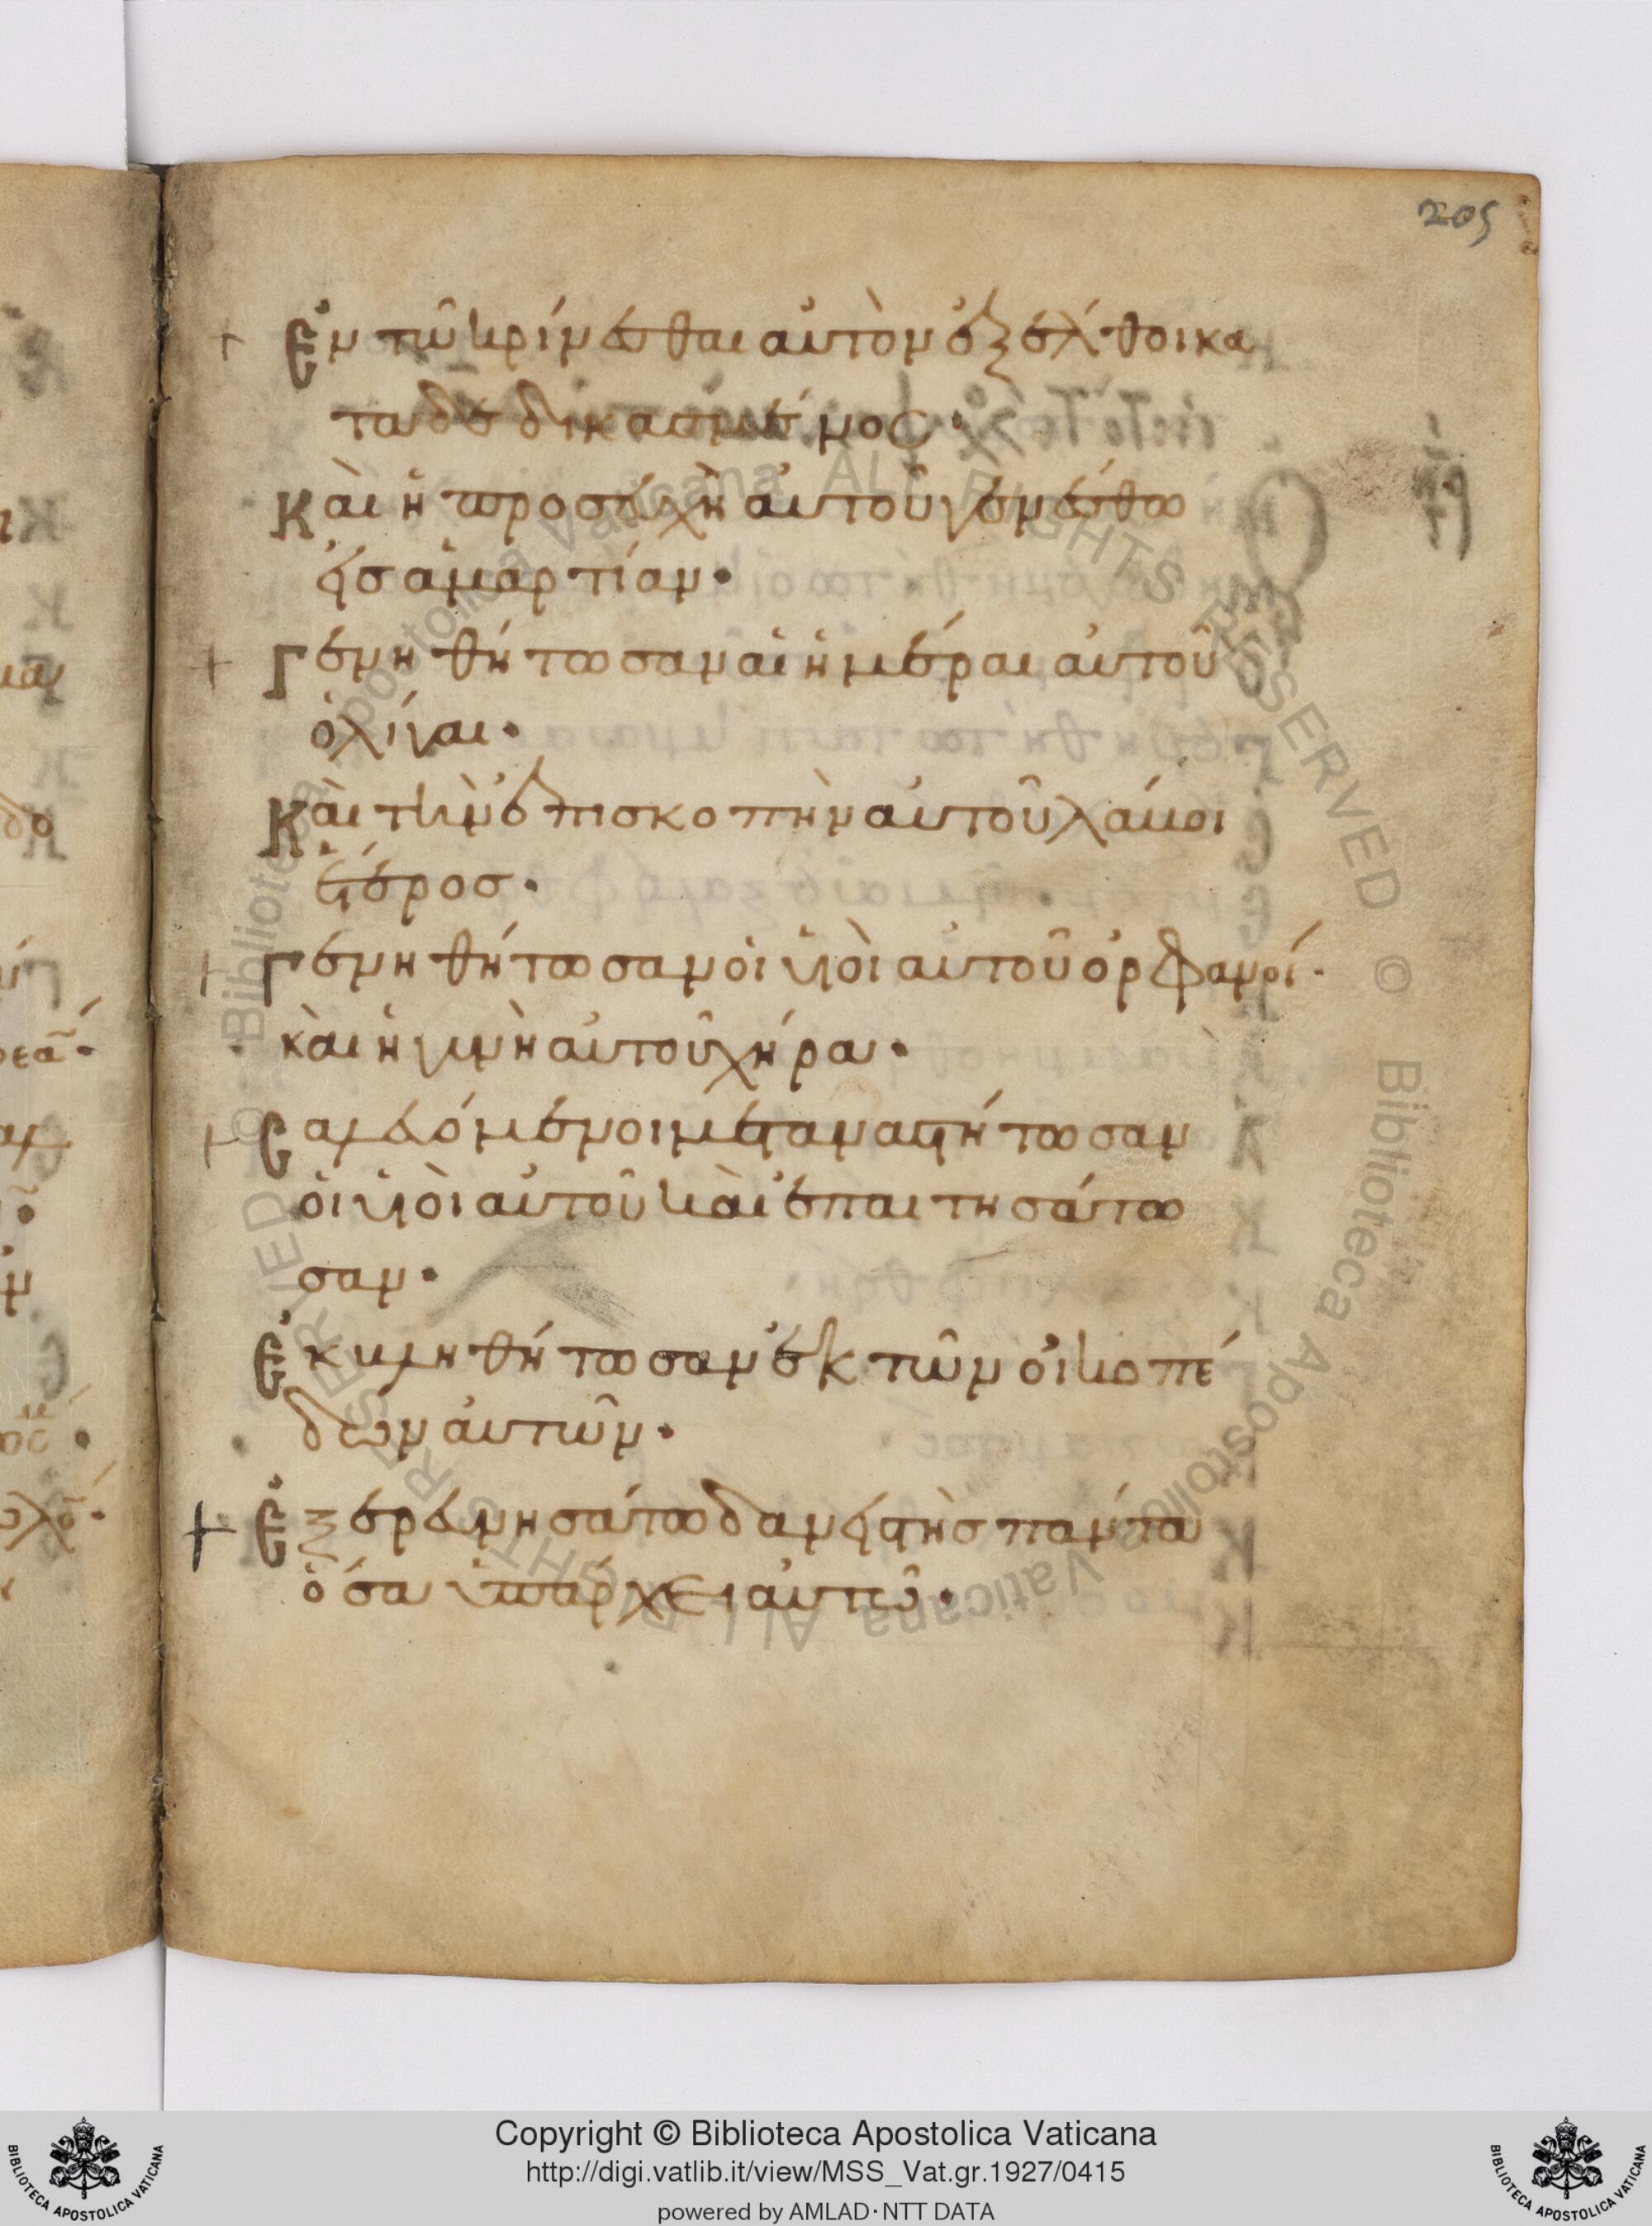 205
+ Ἐν τῶ κρίνεσθαι αὐτὸν ἐξέλθοι κα
ταδεδικασμένος·
Καὶ ἡ προσευχὴ αὐτοῦ γενέσθω
εἰσ ἁμαρτίαν·
+ Γενηθήτωσαν αἱ ἡμέραι αὐτοῦ
ὀλίγαι·
Καὶ τὴν ἐπισκοπὴν αὐτοῦ λάβοι
ἕτεροσ·
+ Γενηθήτωσαν οἱ υἱοὶ αὐτοῦ ὀρφανοί·
καὶ ἡ γυνὴ αὐτοῦ χήρα·
+ Σαλευόμενοι μεταναστήτωσαν
οἱ υἱοὶ αὐτοῦ καὶ ἐπαιτησάτω
σαν·
Ἐκβληθήτωσαν ἐκ τῶν οἰκοπέ
δων αὐτῶν·
+ Ἐξερευνησάτω δανειστὴσ πάντα
ὅσα ὑπάρχει αὐτῶ·
Biblioteca Apostolica Vaticana ALL RIGHTS RESERVED © Biblioteca Apostolica Vaticana ALL RIGHTS RESERVED ©
Copyright © Biblioteca Apostolica Vaticana
http://digi.vatlib.it/view/MSS_Vat.gr.1927/0415
powered by AMLAD·NTT DATA
BIBLIOTECA APOSTOLICA VATICANA
BIBLIOTECA APOSTOLICA VATICANA